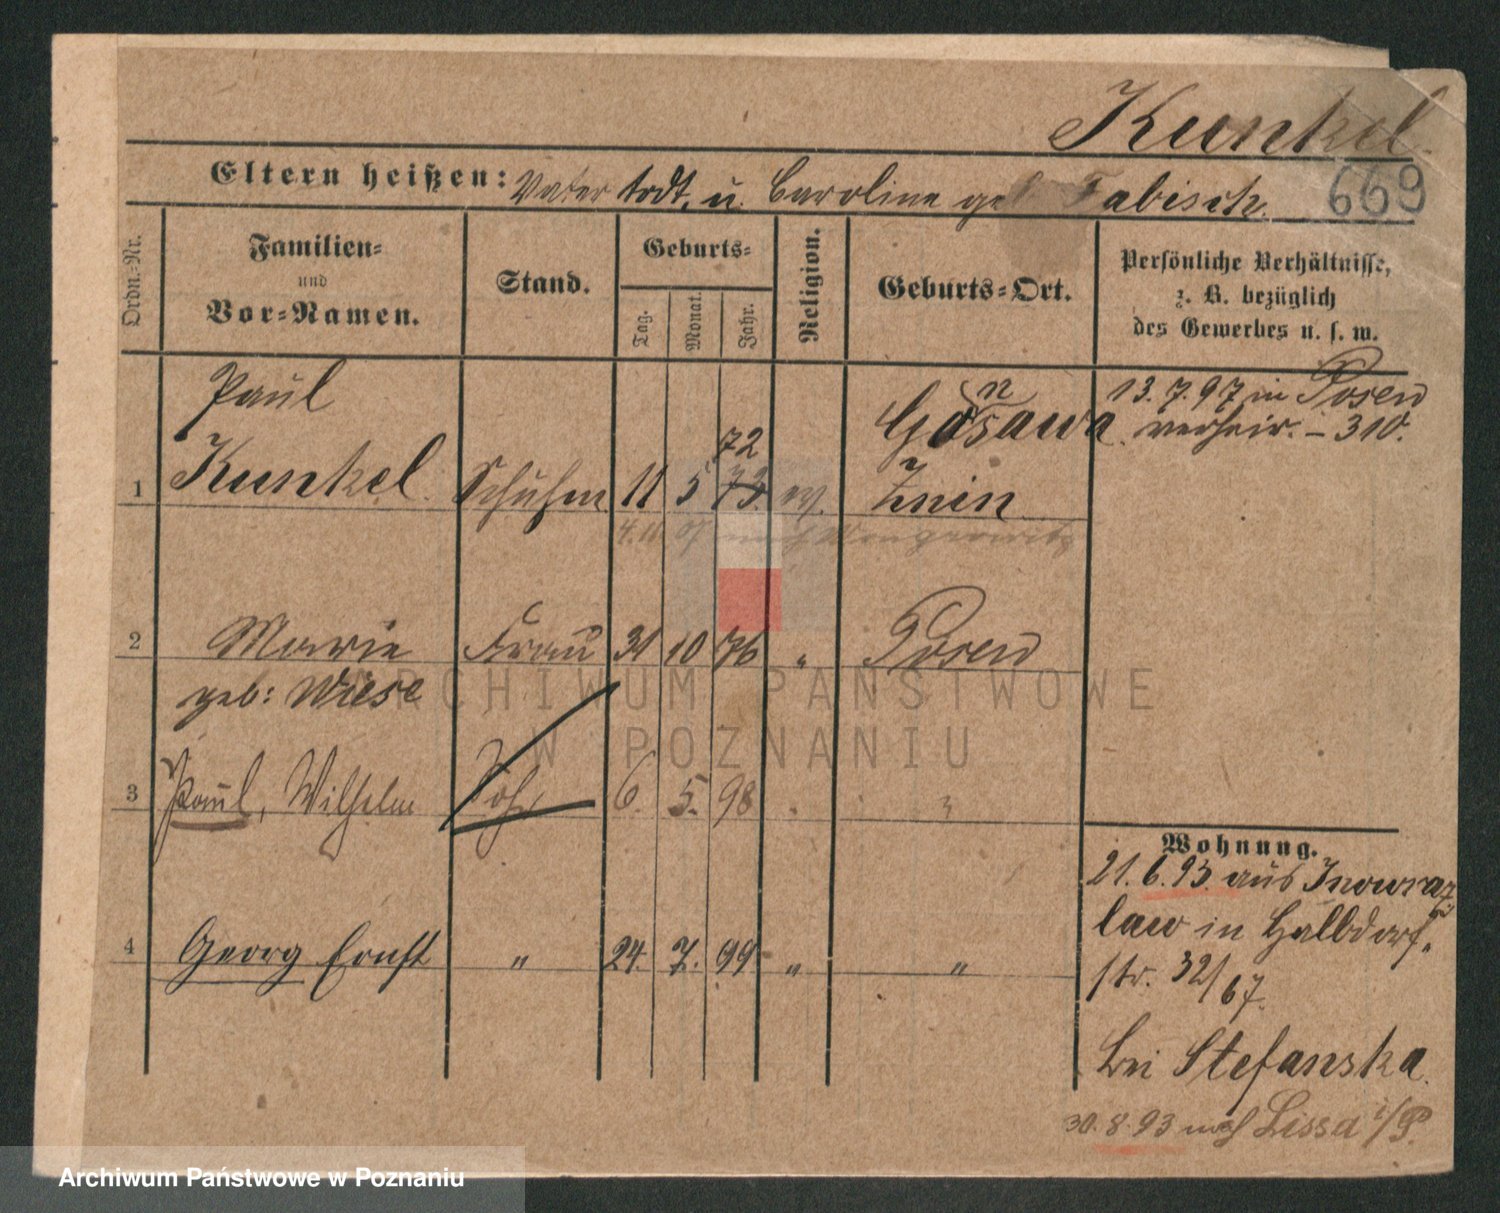 Kunkel.
669
Eltern heißen: Vater todt, u. Caroline geb. Fabisch.
Ordn.-Nr.
Familien- und Vor-Namen.
Stand.
Geburts-
Tag.
Monat.
Jahr.
Religion.
Geburts-Ort.
Persönliche Verhältnisse, z. B. bezüglich des Gewerbes u. s. w.
Paul
Gosawa
n
13. 7. 97 in Posen
verheir. – 310.
72
1 Kunkel. Schuhm 11 5 73. ev. Znin
4. 11. 07 nach
2 Marie Frau 31 10 76 " Posen
geb: Wiese
3 Paul, Wilhelm Sohn 6. 5. 98 "
4 Georg Ernst " 24. 7. 99 " "
Wohnung.
21. 6. 93. aus Inowraz
law in Halbdorf-
str. 32/67.
bei Stefanska.
30. 8. 93 nach Lissa i/P.
ARCHIWUM PAŃSTWOWE
W POZNANIU
Archiwum Państwowe w Poznaniu